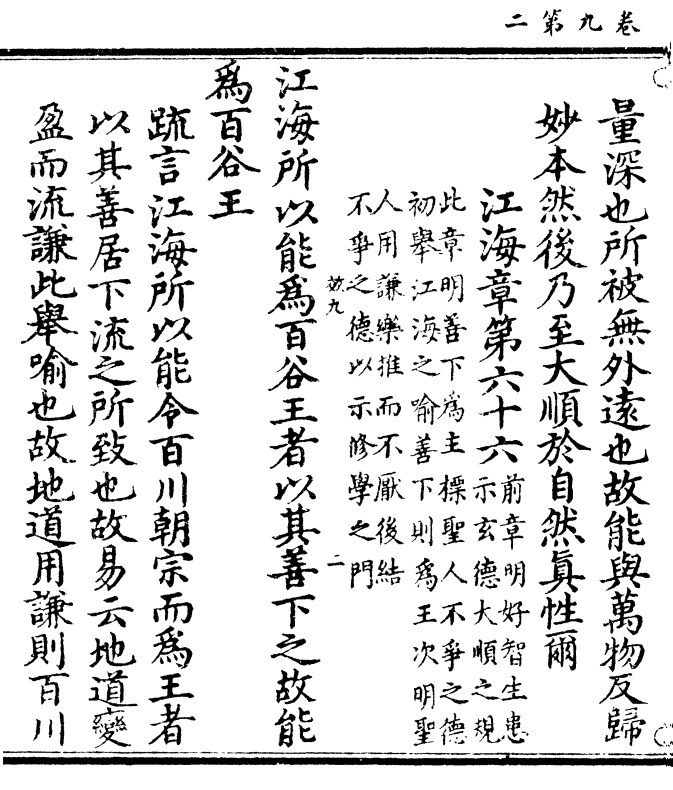 卷九第二
量深也所被無外遠也故能與萬物反歸
妙本然後乃至大順於自然眞性爾
江海章第六十六
前章明好智生患
示玄德大順之規
此章明善下爲主標聖人不爭之德
初舉江海之喻善下則爲王次明聖
人用謙樂推而不厭後結
不爭之德以示修學之門
効九 二
江海所以能爲百谷王者以其善下之故能
爲百谷王
疏言江海所以能令百川朝宗而爲王者
以其善居下流之所致也故易云地道變
盈而流謙此舉喻也故地道用謙則百川